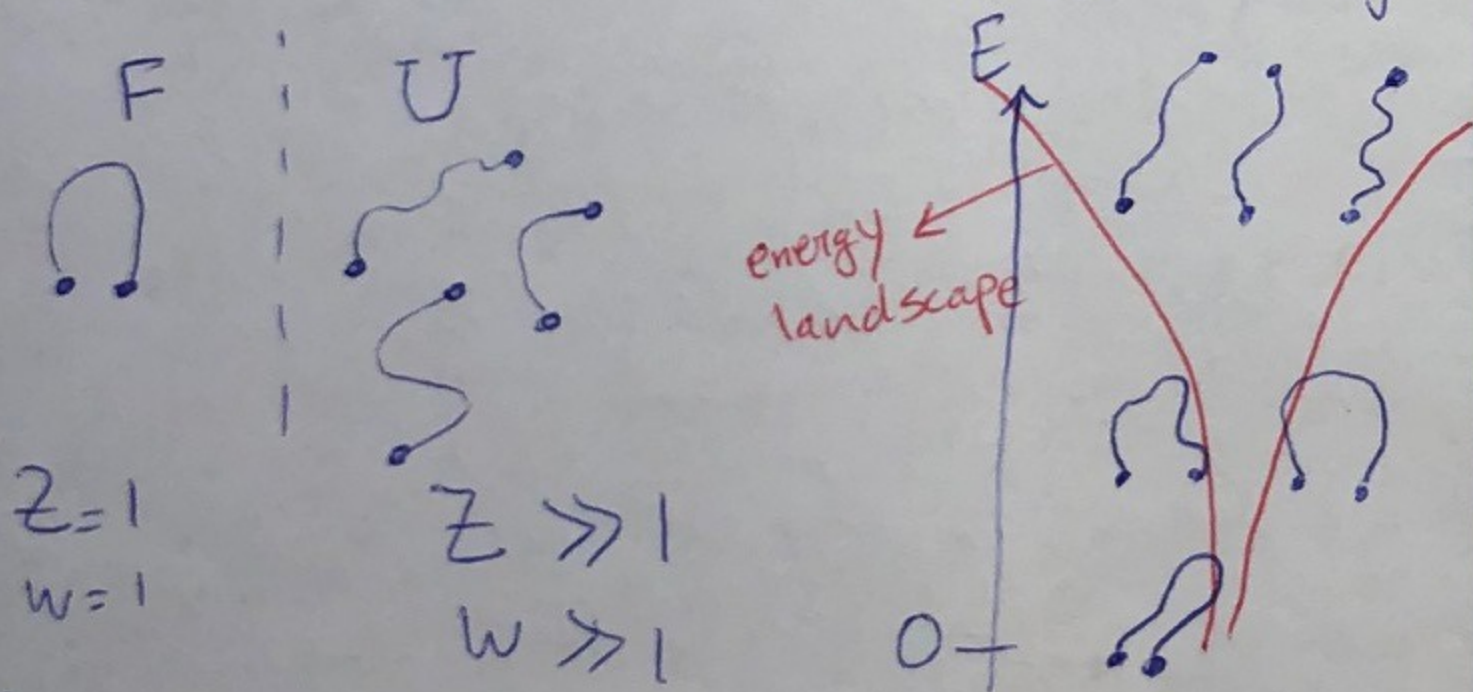 F
U
Z=1
W=1
Z >> 1
W >> 1
E
energy
landscape
0